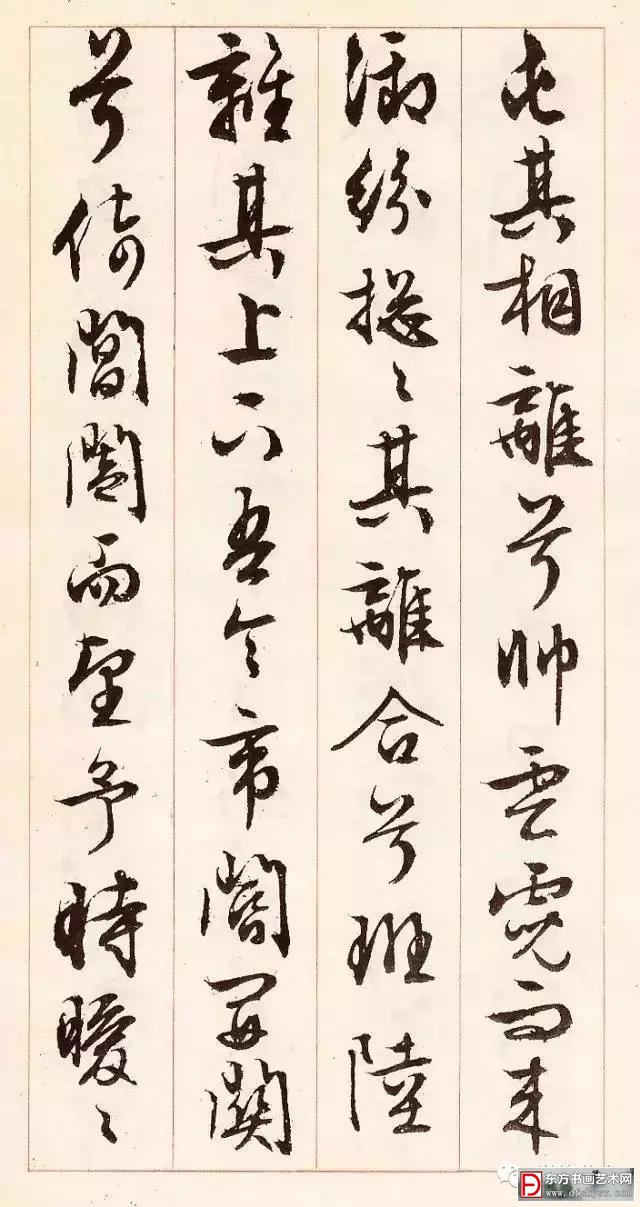 屯其相離兮帥雲霓而来
御紛揔〻其離合兮班陸
離其上下吾令帝閽開關
兮倚閶闔而望予時曖〻
东方书画艺术网
www.dfshysw.com